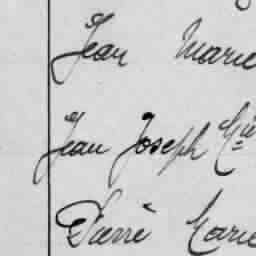 Jean Marie
Jean Joseph Mie
Pierre Marie